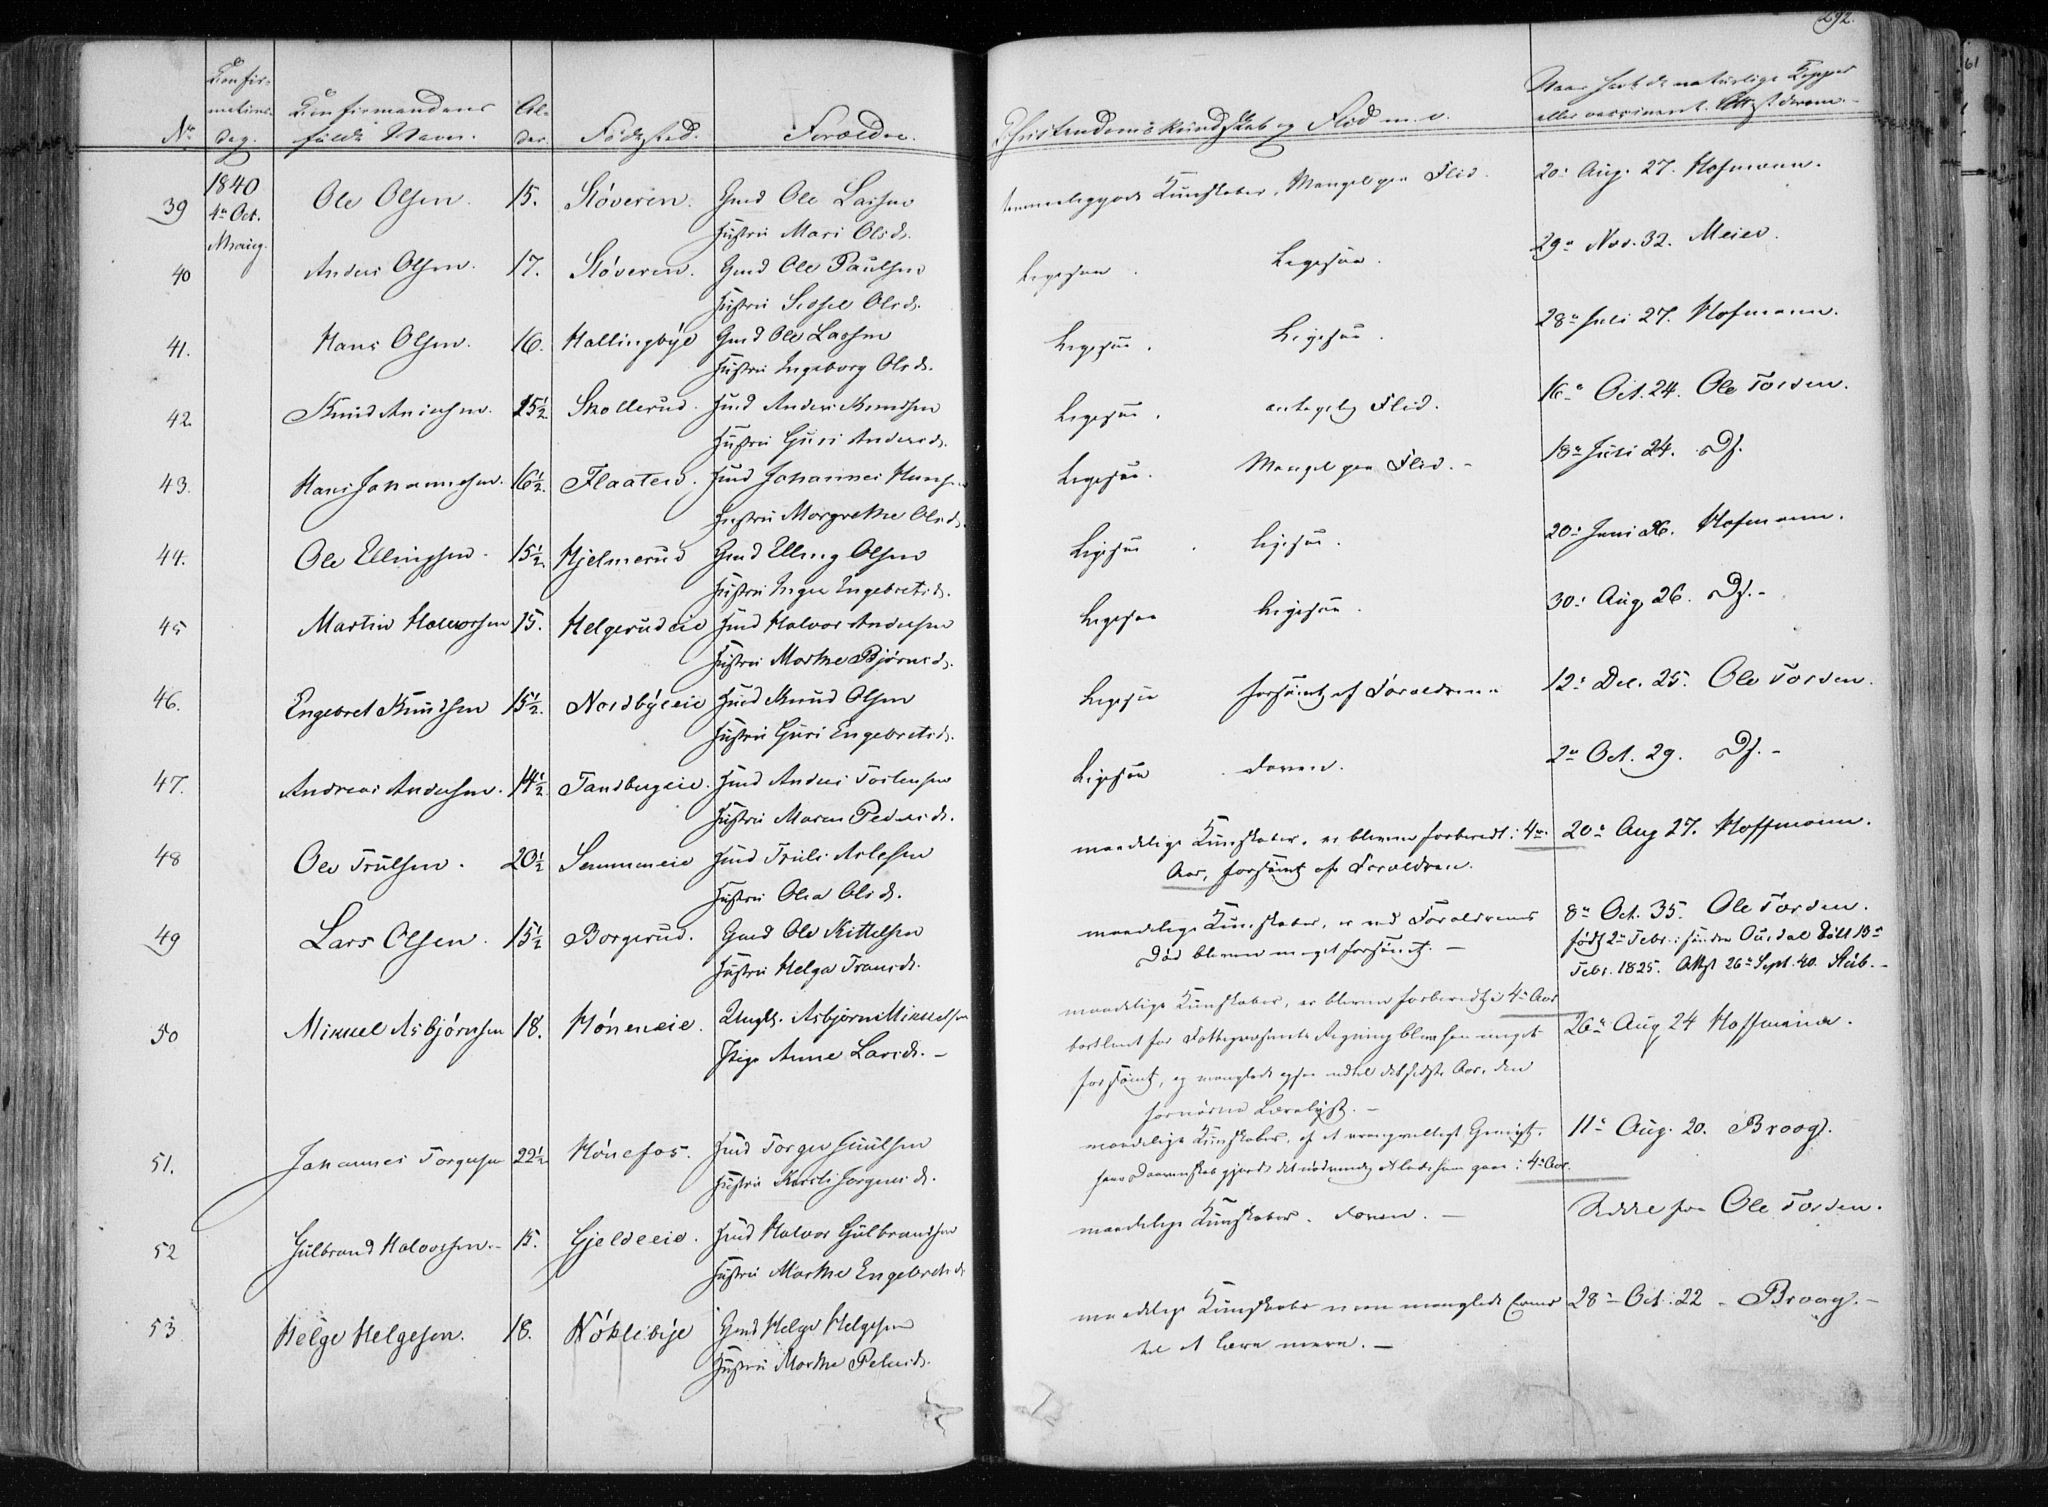 292.
61
No.
Confir-
mations
dag.
Confirmandens
fulde Navn.
Al-
der.
Födested.
Forældre.
Christendomskundskab og Flid m. v.
Naar havt de naturlige Kopper
eller vaccineret. Attest derom.
39
1840
4de Oct.
Ole Olsen.
15.
Støveren.
Gmd Ole Larsen
Hustru Mari Olsd.
Kundskaber. Mangel paa Flid.
20de Aug. 27. Hofmann.
40
Anders Olsen.
17.
Støveren.
Gmd Ole Paulsen
Hustru Sidsel Olsd.
Ligesaa.
Ligesaa.
29de Nov. 32. Meier.
41.
Hans Olsen.
16.
Hallingbýe
Gmd Ole Larsen
Hustru Ingeborg Olsd.
Ligesaa.
Ligesaa.
28de Juli 27. Hofmann.
42.
Knud Andersen.
15½
Skollerud.
Huus Anders Knudsen
Hustru Guri Andersd.
Ligesaa.
antagelig Flid.
16de Oct. 24. Ole Torsen.
43.
Hans Johannesen.
16½
Flaaterd.
Johannes Hansen
Hustru Margrethe Olsd.
Ligesaa.
Mangel paa Flid.
18de Juli 24. Ds.
44.
Ole Ellingsen.
15½
Hjelmerud
Gmd Elling Olsen
Hustru Inger Engebretsd.
Ligesaa.
Ligesaa.
20de Juni 26. Hofmann.
45
Martin Halvorsen
15.
Helgerudeie
Halvor Andersen
Hustru Marthe Bjørnsd.
Ligesaa
Ligesaa.
30de Aug. 26. Ds.
46.
Engebret Knudsen
15½.
Nordbýeie
Knud Olsen
Hustru Guri Engebretsd.
Ligesaa
forsömt af Forældrene
12te Dec. 25. Ole Torsen.
47.
Andreas Andersen.
14½
Tandbergeie.
Anders Torstensen
Hustru Maren Pedersd.
Ligesaa
doven.
2den Oct. 29. Ds.
48
Ole Trulsen.
20½
Semmeneie
Truls Arlesen
Hustru Olea Olsd.
maadelige Kundskaber, er bleven forberedt i 4de
Aar, forsömt af Forældrene.
20de Aug 27. Hoffmann.
49
Lars Olsen.
15½
Borgerud.
Gmd Ole Kittelsen
Hustru Helga Fransd.
maadelige Kundskaber, er ved Forældrenes
Död bleven meget forsömt.
8de Oct. 35. Ole Torsen.
født 2de Febr. i söndre Ourdal döbt 13de
Febr. 1825. Attest 26de Sept. 40. Stub.
50
Mikkel Asbjørnsen
18.
Hóneneie.
Ungk. Asbjørn Mikkelsen
Pige Anne Larsd.
maadelige Kundskaber, er bleven forberedt i 4de Aar
bortleiet for Fattigvæsenets Regning blev han meget
forsömt, og manglede ogsaa indtil det sidste Aar, den
fornødne Lærelyst.
26de Aug 24 Hoffmann.
51.
Johannes Torgersen
22½
Hónefos.
Torger Juulsen
Hustru Kirsti Jorgensd.
maadelige Kundskaber,
hans Dovenskab gjorde det nødvendigt at lade ham gaae i 4de Aar.
11te Aug. 20. Broog.
52
Gulbrand Halvorsen.
15.
Gjeldeeie.
Halvor Gulbrandsen
Hustru Marthe Engebretsd.
maadelige Kundskaber. doven.
Seddel fra Ole Torsen.
53
Helge Helgesen.
18.
Nóklebýe
Gmd Helge Helgesen
Hustru Marthe Pedersd.
maadelige Kundskaber men manglede Evner
til at lære mere.
28de Oct. 22. Broog.